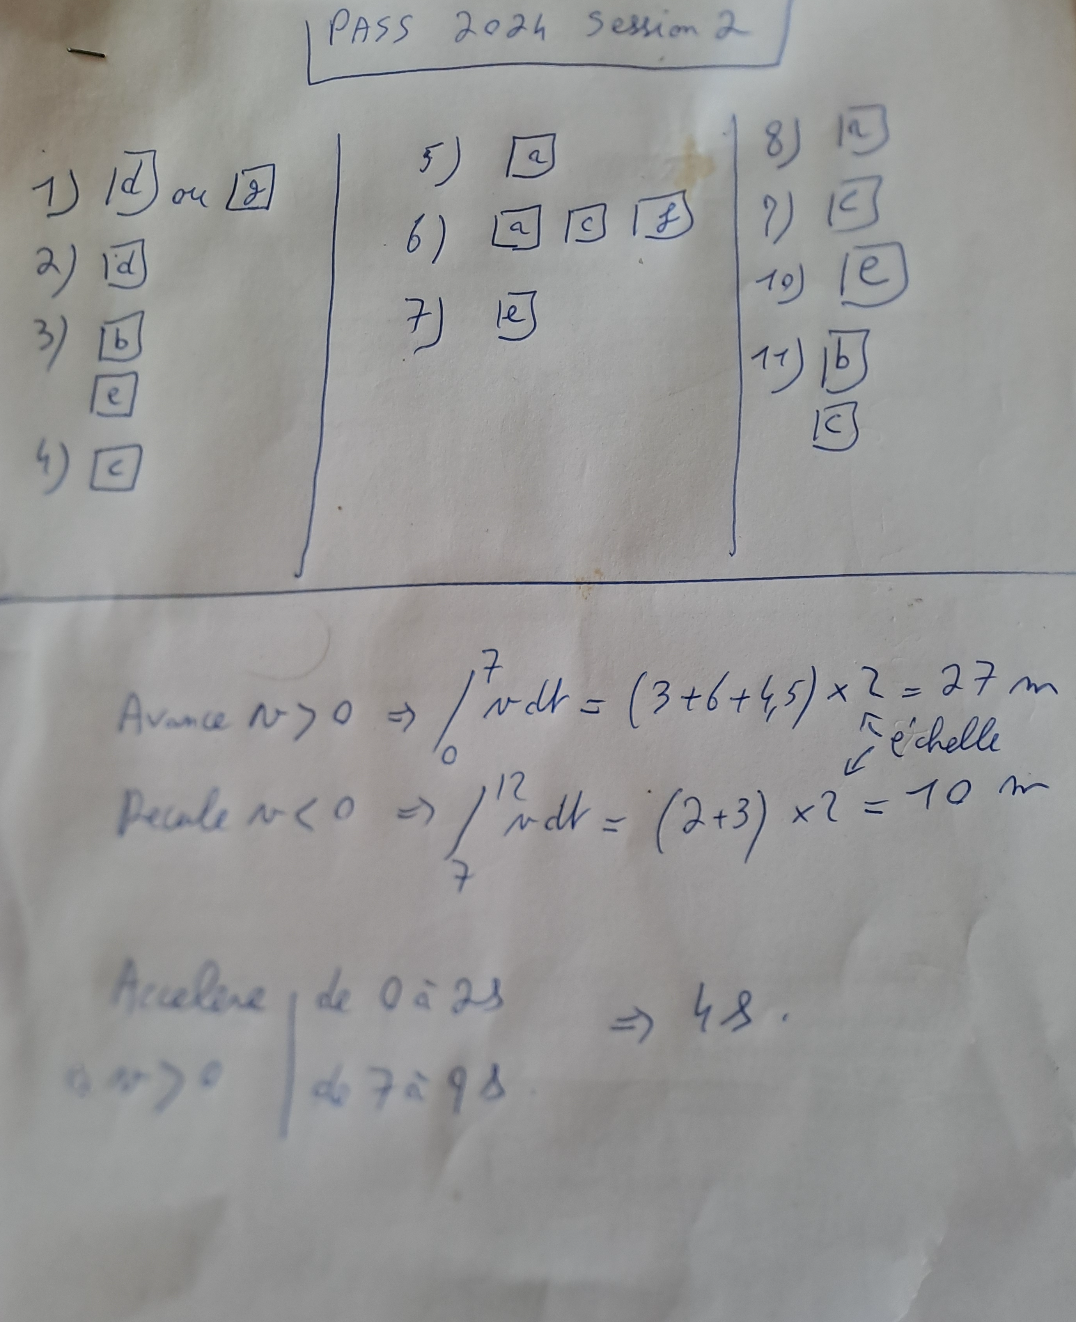 PASS 2024 Session 2
1) d ou g
2) d
3) b
e
4) c
5) a
6) a c f
7) e
8) a
9) c
10) e
11) b
c
Avance v > 0 => ∫₀⁷ v dt = (3+6+4,5) × 2 = 27 m
échelle
Recule v < 0 => ∫₇¹² v dt = (2+3) × 2 = 10 m
Accelere de 0 à 2s => 4s.
v > 0 de 7 à 9s